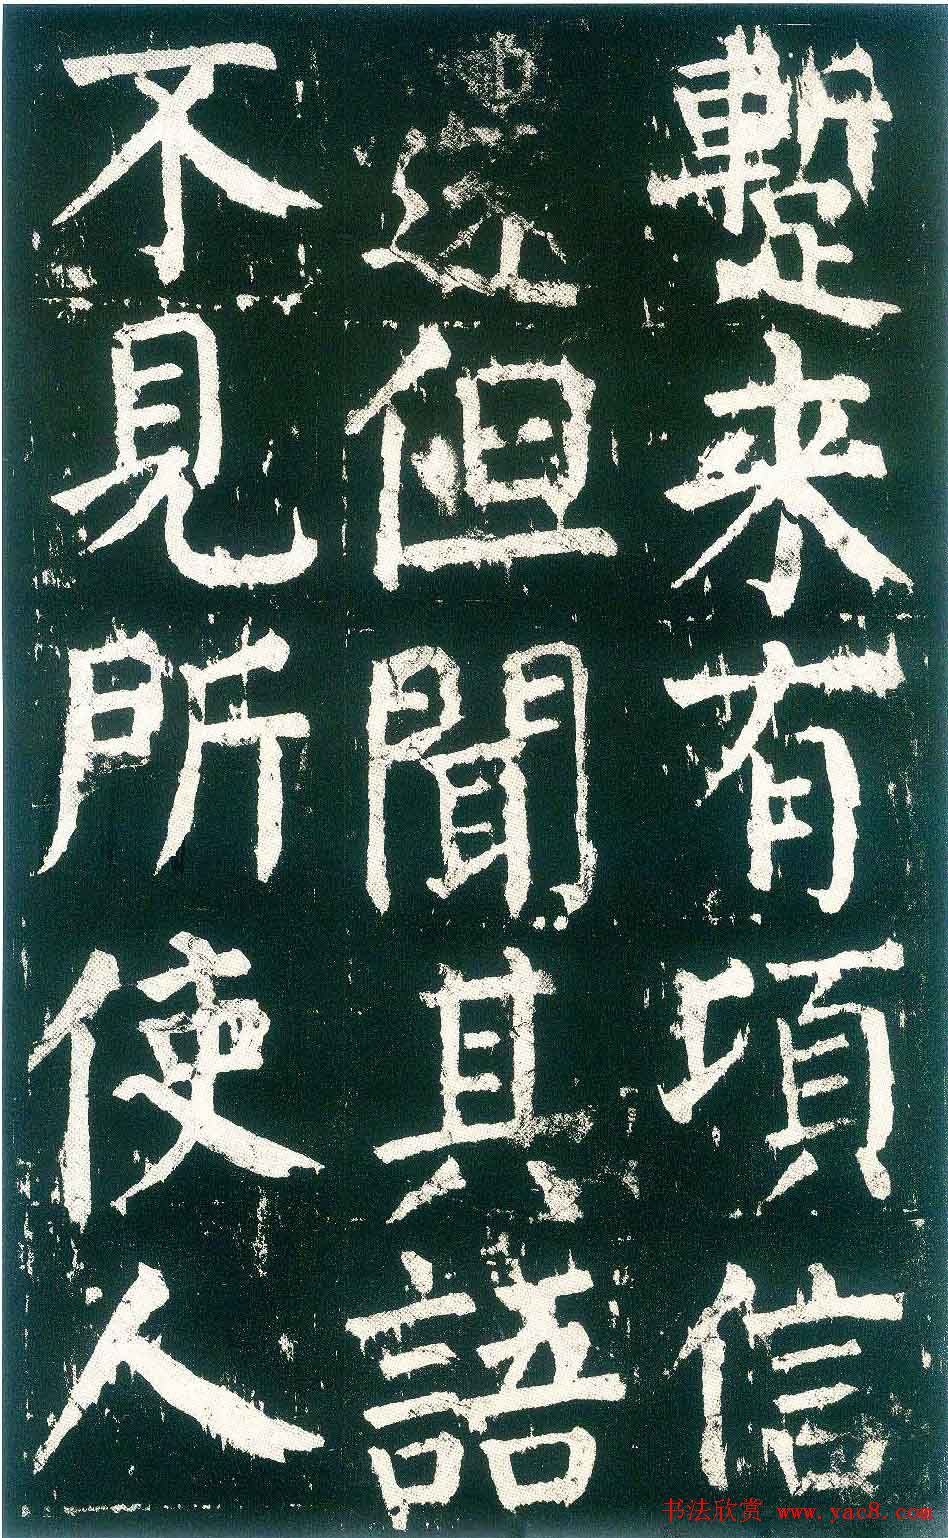 蹔来有頃信
還但聞其語
不見所使人
书法欣赏 www.yac8.com